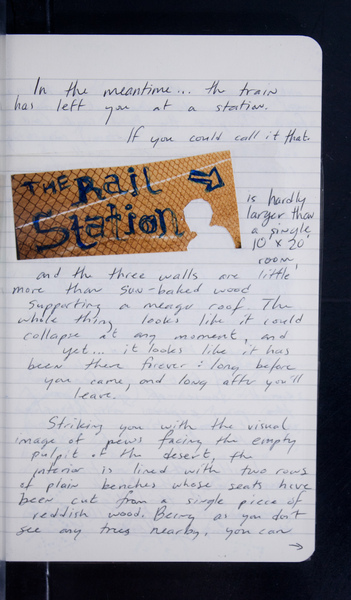 In the meantime... the train
has left you at a station.
If you could call it that.
THE Rail
Station
is hardly
larger than
a single,
10' x 20'
room,
and the three walls are little
more than sun-baked wood
supporting a meager roof. The
whole thing looks like it could
collapse at any moment, and
yet... it looks like it has
been there forever: long before
you came, and long after you'll
leave.
Striking you with the visual
image of pews facing the empty
pulpit of the desert, the
interior is lined with two rows
of plain benches whose seats have
been cut from a single piece of
reddish wood. Being as you don't
see any trees nearby, you can
→